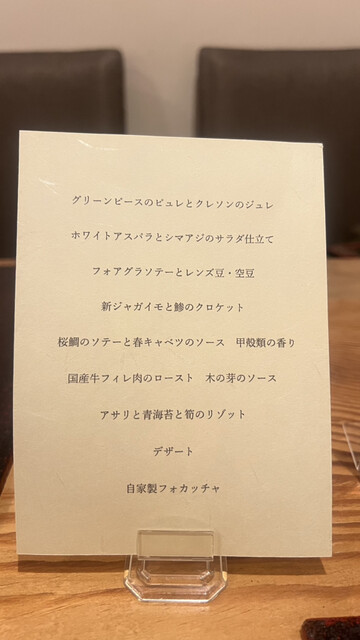 グリーンピースのピュレとクレソンのジュレ
ホワイトアスパラとシマアジのサラダ仕立て
フォアグラソテーとレンズ豆・空豆
新ジャガイモと鯵のクロケット
桜鯛のソテーと春キャベツのソース　甲殻類の香り
国産牛フィレ肉のロースト　木の芽のソース
アサリと青海苔と筍のリゾット
デザート
自家製フォカッチャ